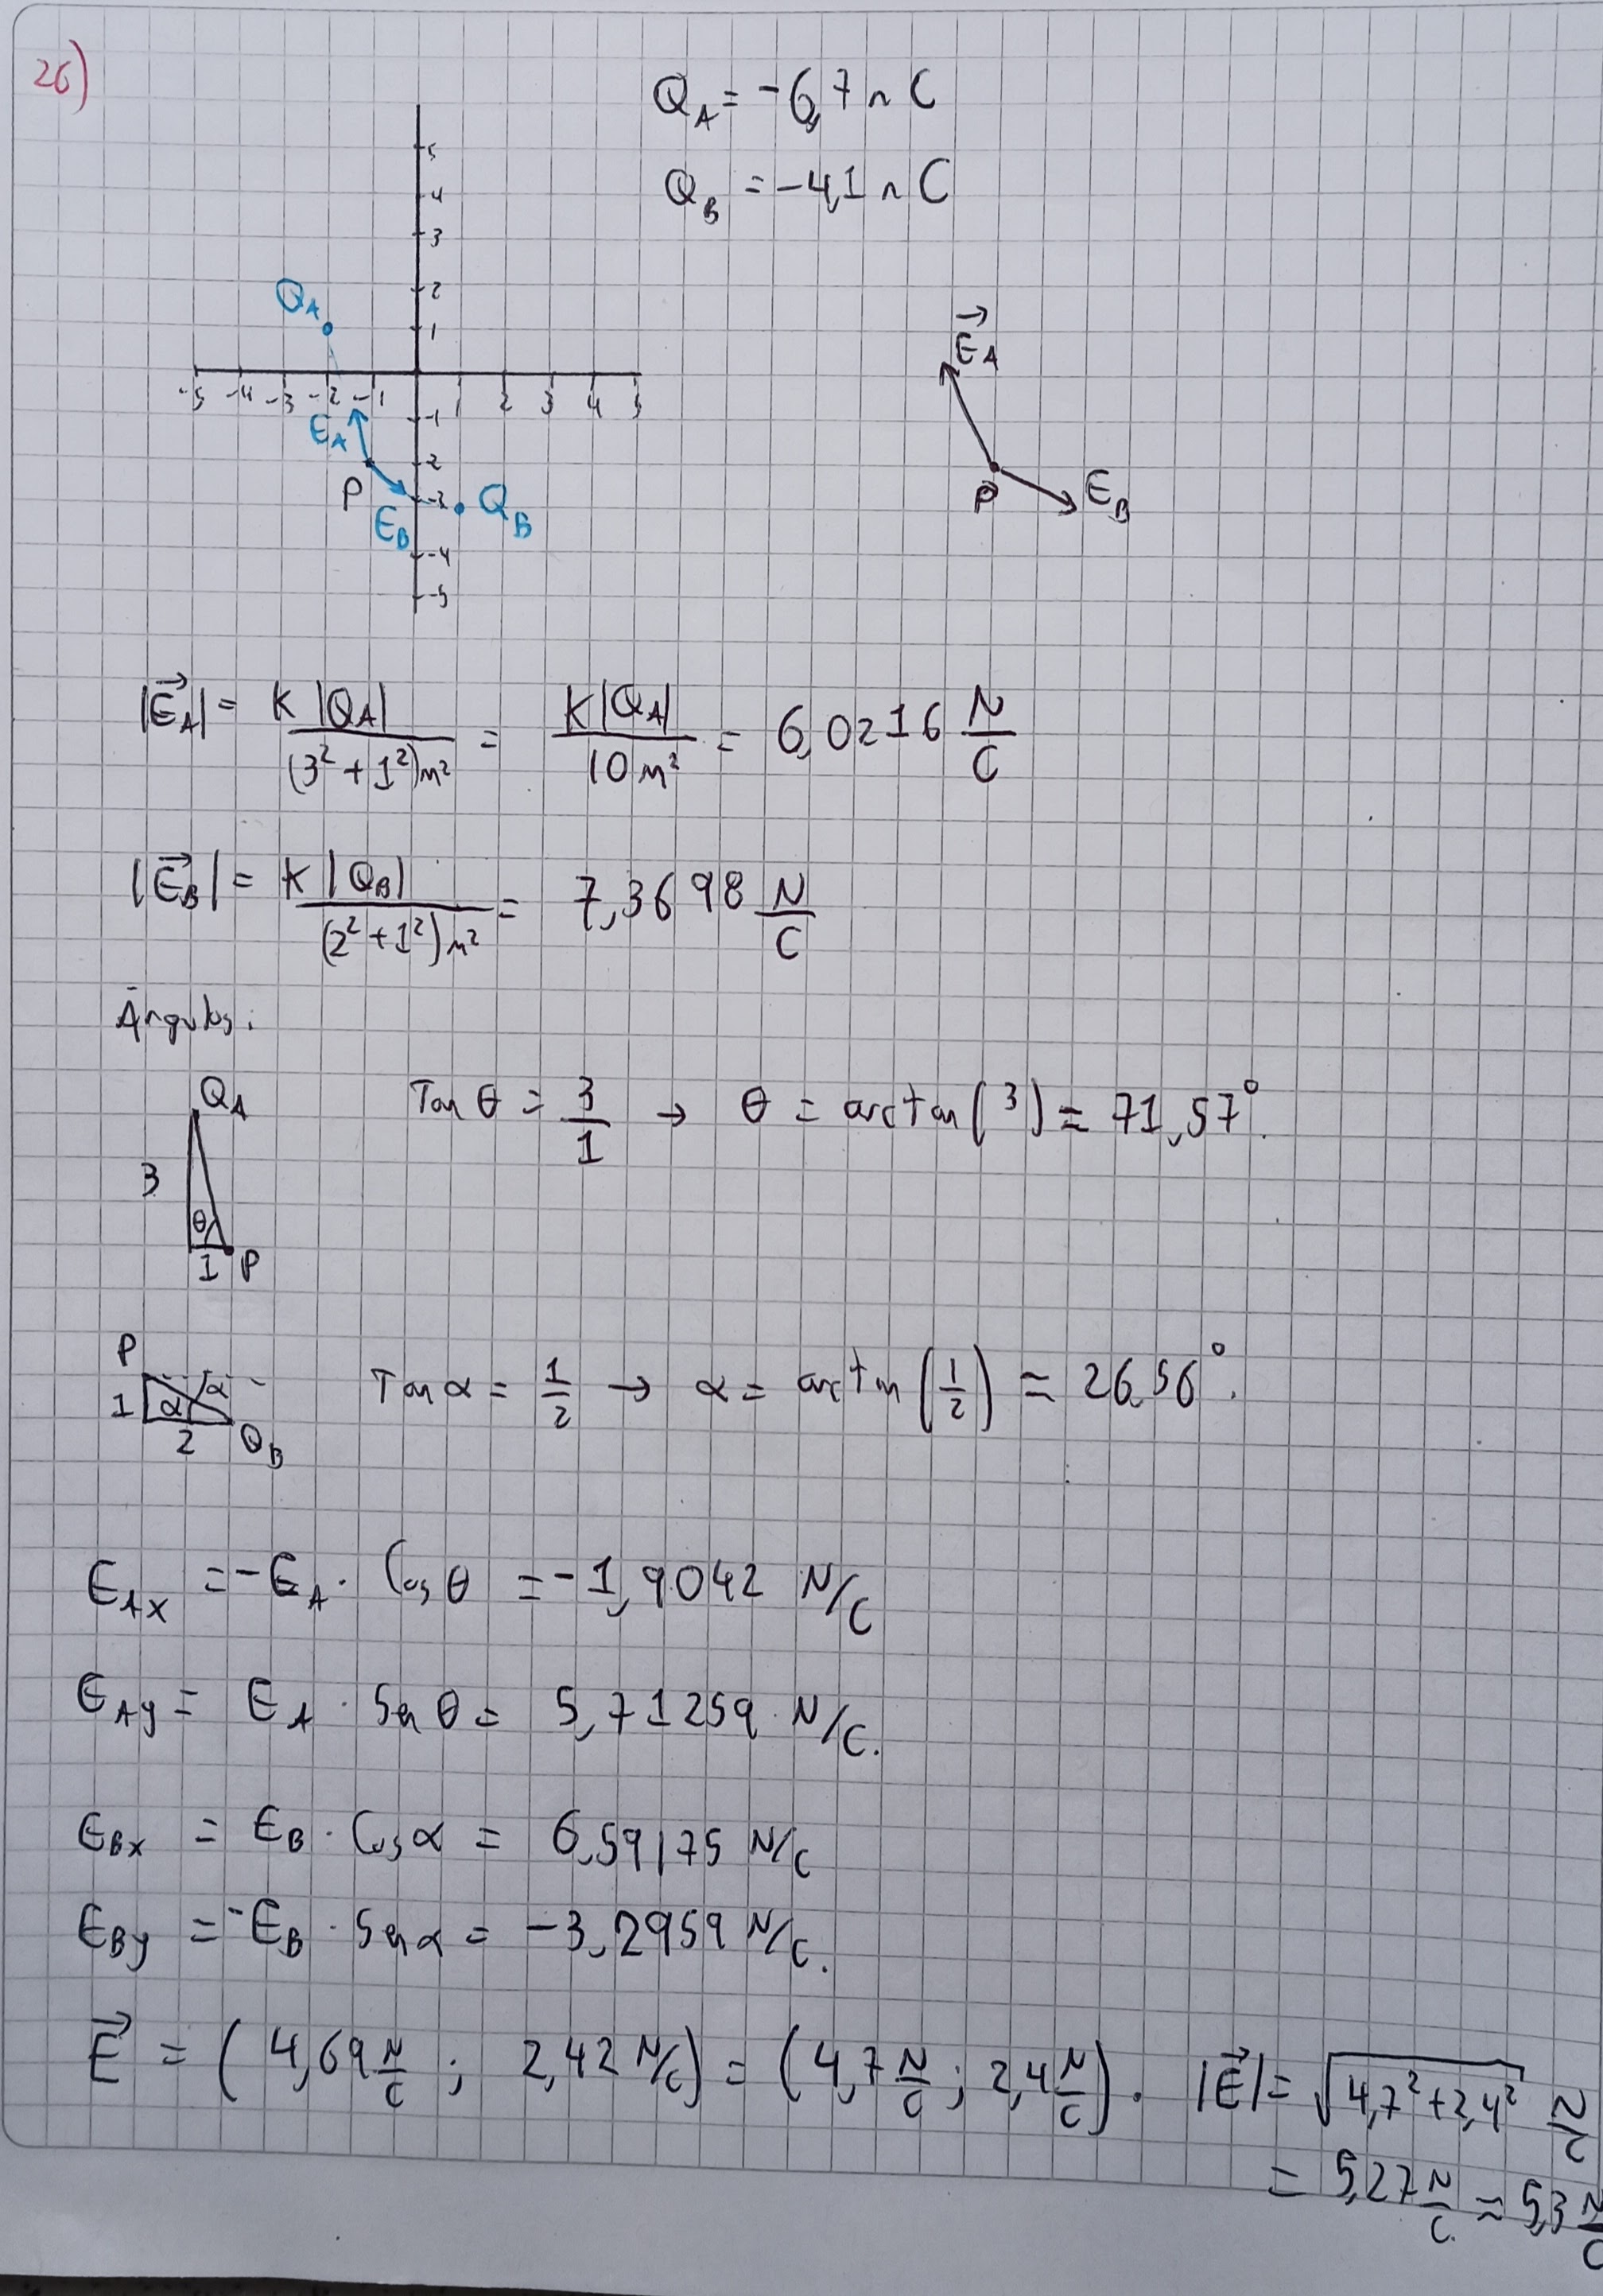 26)
Q_A = -6,7 n C
Q_B = -4,1 n C
5
4
3
2
1
-5 -4 -3 -2 -1 1 2 3 4 5
-1
-2
-3
-4
-5
Q_A
E_A
P
E_B
Q_B
\vec{E}_A
P
E_B
|\vec{E}_A| = K |Q_A| / (3² + 1²) m² = K |Q_A| / 10 m² = 6,0216 N/C
|\vec{E}_B| = K |Q_B| / (2² + 1²) m² = 7,3698 N/C
Ángulos:
Q_A
3
θ
1 P
Tan θ = 3/1 → θ = arctan(3) ≈ 71,57°.
P
1 α α
2 Q_B
Tan α = 1/2 → α = arctan(1/2) ≈ 26,56°.
E_Ax = -E_A · Cos θ = -1,9042 N/C
E_Ay = E_A · Sen θ = 5,71259 N/C.
E_Bx = E_B · Cos α = 6,59175 N/C
E_By = -E_B · Sen α = -3,2959 N/C.
\vec{E} = (4,69 N/C ; 2,42 N/C) = (4,7 N/C ; 2,4 N/C). |\vec{E}| = √(4,7² + 2,4²) N/C
= 5,27 N/C. ≈ 5,3 N/C